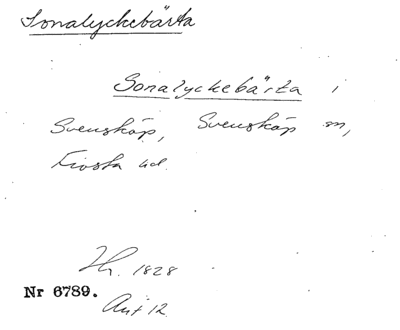 Sonalyckebärta
Sonalyckebärta i
Svensköp, Svensköp sn,
Frosta hd.
Hr. 1828
Nr 6789.
Aut 12